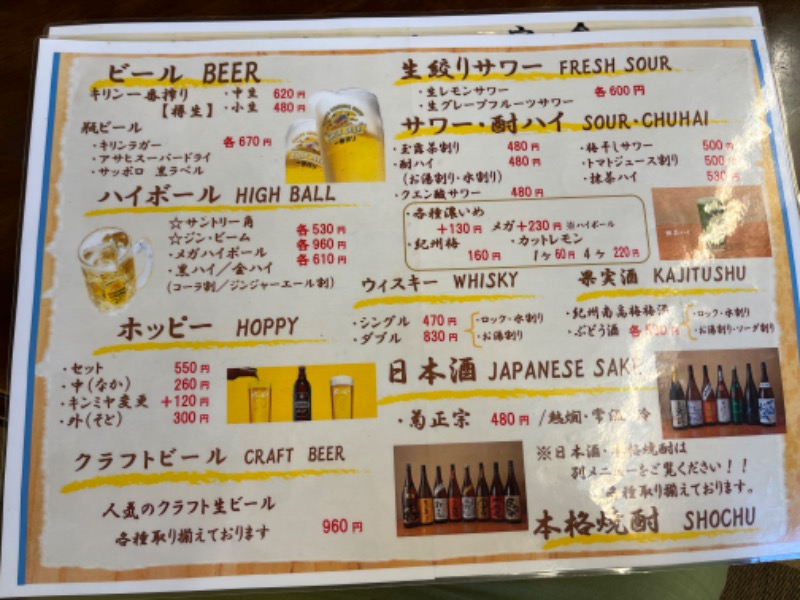 ビール BEER
キリン一番搾り ・中生 620円
【樽生】 ・小生 480円
瓶ビール
・キリンラガー 各670円
・アサヒスーパードライ
・サッポロ 黒ラベル
ハイボール HIGH BALL
☆サントリー角 各530円
☆ジン・ビーム
・メガハイボール 各960円
・黒ハイ/金ハイ 各610円
(コーラ割/ジンジャーエール割)
ホッピー HOPPY
・セット 550円
・中(なか) 260円
・キンミヤ変更 +120円
・外(そと) 300円
クラフトビール CRAFT BEER
人気のクラフト生ビール
各種取り揃えております 960円
生絞りサワー FRESH SOUR
・生レモンサワー 各600円
・生グレープフルーツサワー
サワー・酎ハイ SOUR・CHUHAI
・玉露茶割り 480円
・酎ハイ 480円
(お湯割り・水割り)
・クエン酸サワー 480円
・梅干しサワー 500円
・トマトジュース割り 500円
・抹茶ハイ 530円
・各種濃いめ
+130円 メガ+230円 ※ハイボール
・紀州梅 ・カットレモン
160円 1ヶ60円 4ヶ220円
ウィスキー WHISKY
・シングル 470円 ・ロック・水割り
・ダブル 830円 ・お湯割り
果実酒 KAJITUSHU
・紀州南高梅梅酒 ・ロック・水割り
・ぶどう酒 各 円 ・お湯割り・ソーダ割り
日本酒 JAPANESE SAKE
・菊正宗 480円 /熱燗・常温・冷
※日本酒・本格焼酎は
別メニューをご覧ください!!
各種取り揃えております。
本格焼酎 SHOCHU